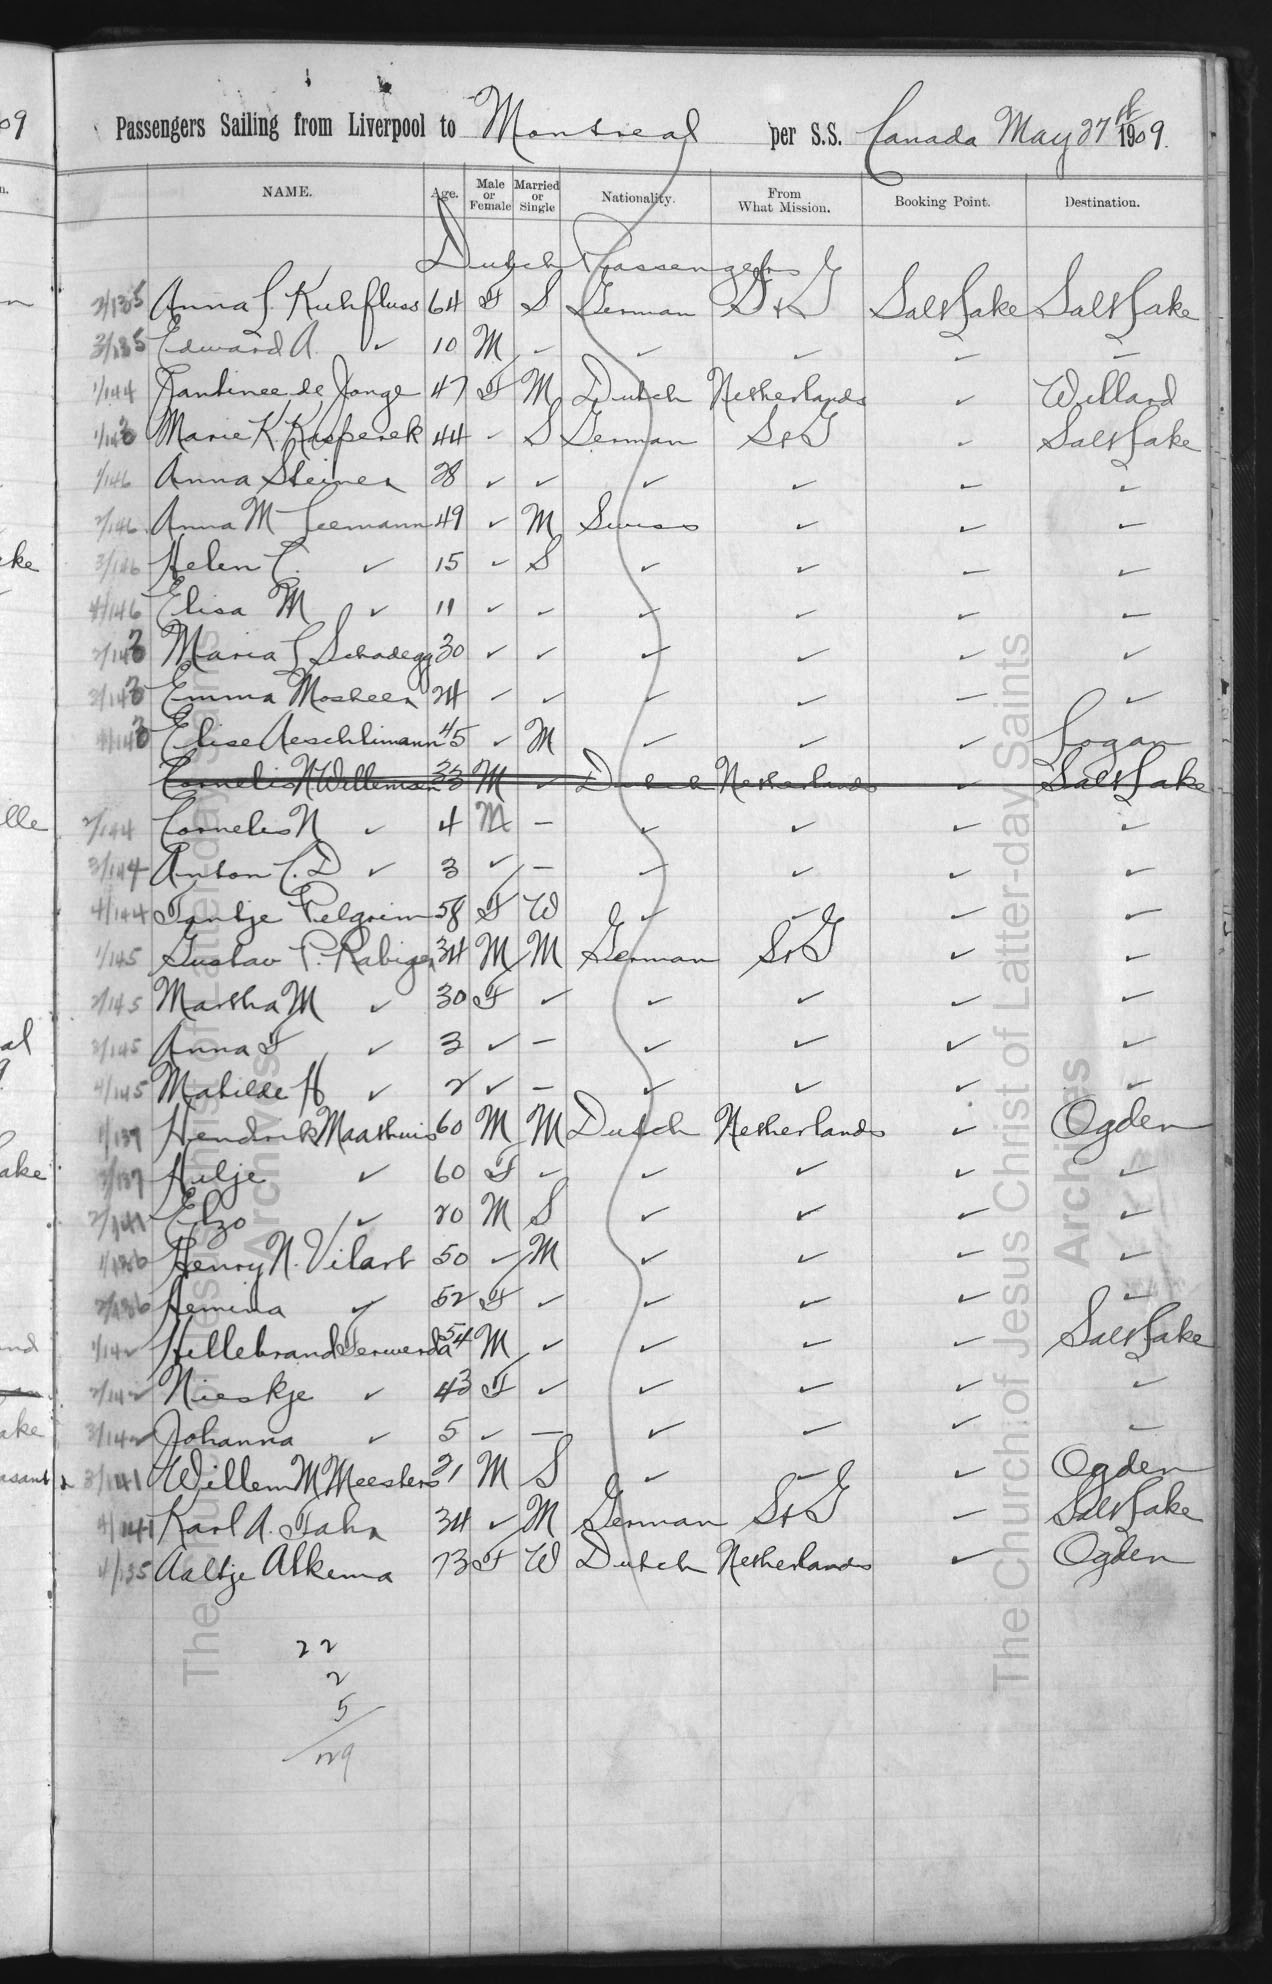 Passengers Sailing from Liverpool to Montreal per S.S. Canada May 27th 1909.
NAME. Age. Male or Female Married or Single Nationality. From What Mission. Booking Point. Destination.
Dutch Passengers
2/135 Anna L Kuhfluss 64 F S German S & G Salt Lake Salt Lake
3/135 Edward A. ✓ 10 M ✓ ✓ ✓ ✓ ✓
1/144 de Jonge 47 F M Dutch Netherlands ✓ Willard
1/143 Marie K Kasperek 44 ✓ S German S & G ✓ Salt Lake
1/146 Anna Steiner 28 ✓ ✓ ✓ ✓ ✓ ✓
2/146 Anna M Leemann 49 ✓ M Swiss ✓ ✓ ✓
3/146 Helen C. ✓ 15 ✓ S ✓ ✓ – ✓
4/146 Elisa M ✓ 11 ✓ ✓ ✓ ✓ ✓ ✓
2/143 Maria L Schadegg 30 ✓ ✓ ✓ ✓ ✓ ✓
3/143 Emma Mosheer 24 ✓ ✓ ✓ ✓ – ✓
4/143 Elise Aeschlimann 45 ✓ M ✓ ✓ ✓ Logan
Cornelis N Willemsen 33 M ✓ Dutch Netherlands ✓ Salt Lake
2/144 Cornelis N ✓ 4 M – ✓ ✓ ✓ ✓
3/144 Anton C. D ✓ 3 ✓ – ✓ ✓ ✓ ✓
4/144 Tantje Pelgrim 58 F W ✓ ✓ ✓ ✓
1/145 Gustav P. Rabiger 34 M M German S & G ✓ ✓
2/145 Martha M ✓ 30 F ✓ ✓ ✓ ✓ ✓
3/145 Anna F ✓ 3 ✓ – ✓ ✓ ✓ ✓
4/145 Mathilde H ✓ 2 ✓ – ✓ ✓ ✓ ✓
1/137 Hendrik Maathuis 60 M M Dutch Netherlands ✓ Ogden
3/137 Hilje ✓ 60 F ✓ ✓ ✓ ✓ ✓
2/141 Elzo ✓ 20 M S ✓ ✓ ✓ ✓
1/136 Henry N. Vilart 50 ✓ M ✓ ✓ ✓ ✓
2/136 Hemina ✓ 52 F ✓ ✓ ✓ ✓ ✓
1/142 Hillebrand Ferwerda 54 M ✓ ✓ ✓ ✓ Salt Lake
2/142 Nieskje ✓ 43 F ✓ ✓ ✓ ✓ ✓
3/142 Johanna ✓ 5 ✓ – ✓ ✓ ✓ ✓
3/141 Willem M Meesters 21 M S ✓ ✓ ✓ Ogden
4/141 Karl A. Jahn 34 ✓ M German S & G ✓ Salt Lake
4/135 Aaltje Alkema 73 F W Dutch Netherlands ✓ Ogden
22
2
5
29
The Church of Jesus Christ of Latter-day Saints
Archives
The Church of Jesus Christ of Latter-day Saints
Archives